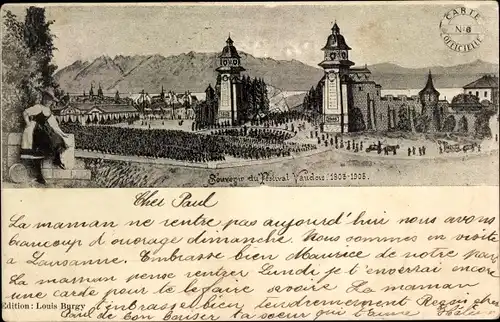 CARTE
No 6
OFFICIELLE
Souvenir du Festival Vaudois. 1803-1903.
Cher Paul
La maman ne rentre pas aujourd'hui nous avons
beaucoup d'ouvrage dimanche. Nous sommes en visite
a Lausanne. Embrasse bien Maurice de notre part
La maman pense rentrer Lundi je t'enverrai encore
une carde pour te le faire savoir La maman
t'embrasse bien tendrement Reçois cher
Edition: Louis Burgy
Paul de bon baiser ta soeur qui t'aime